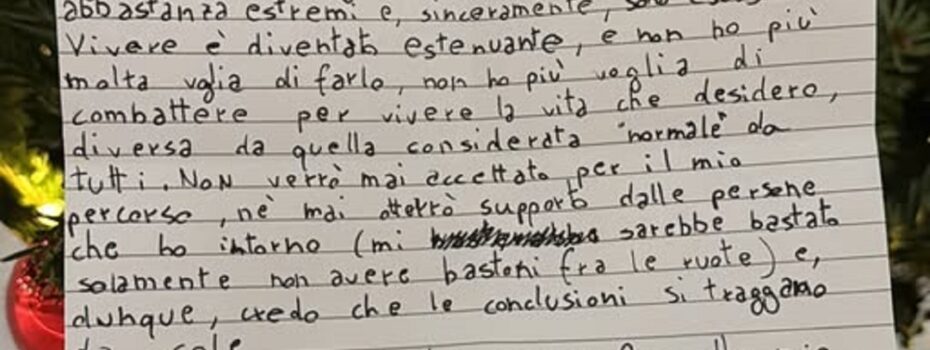 abbastanza estremi e, sinceramente,
Vivere è diventato estenuante, e non ho più
molta voglia di farlo, non ho più voglia di
combattere per vivere la vita che desidero,
diversa da quella considerata "normale" da
tutti. NON verrò mai accettato per il mio
percorso, nè mai otterrò supporto dalle persone
che ho intorno (mi sarebbe bastato
solamente non avere bastoni fra le ruote) e,
dunque, credo che le conclusioni si traggano